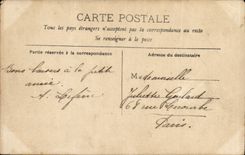 CARTE POSTALE
Tous les pays étrangers n'acceptent pas la correspondance au recto
Se renseigner à la poste
Partie réservée à la correspondance
Adresse du destinataire
Bons baisers à la petite
amie
A.
Mademoiselle
Juliette
68 rue
Paris